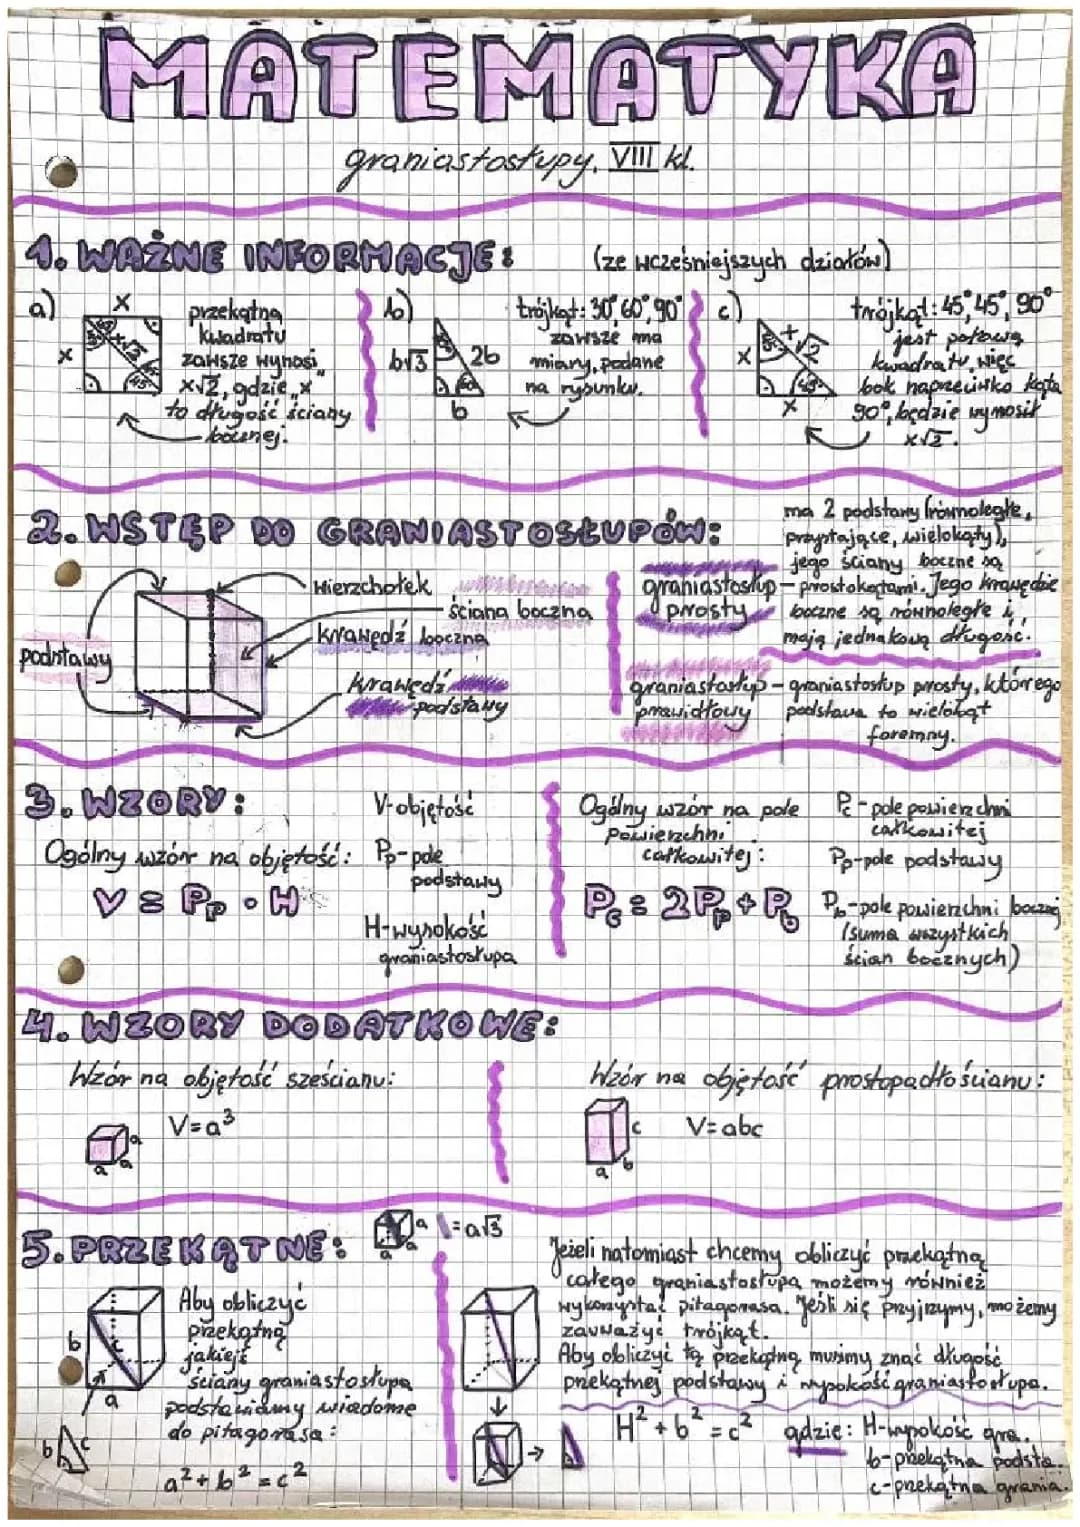 MATEMATYKA
graniastosłupy. VIII kl.
1. WAŻNE INFORMACJE:
(ze wcześniejszych działów)
a)
x
x
x√2
45°
45°
przekątna
kwadratu
zawsze wynosi
x√2, gdzie „x"
to długość ściany
bocznej.
b)
b√3
2b
60°
b
trójkąt: 30°, 60°, 90°
zawsze ma
miary, podane
na rysunku.
c)
x
x√2
45°
x
trójkąt: 45°, 45°, 90°
jest połową
kwadratu, więc
bok naprzeciwko kąta
90°, będzie wynosił
x√2.
2. WSTĘP DO GRANIASTOSŁUPÓW:
podstawy
wierzchołek
ściana boczna
krawędź boczna
krawędź
podstawy
graniastosłup
prosty
- ma 2 podstawy (równoległe,
przystające, wielokąty),
jego ściany boczne są
prostokątami. Jego krawędzie
boczne są równoległe i
mają jednakową długość.
graniastosłup
prawidłowy
- graniastosłup prosty, którego
podstawa to wielokąt
foremny.
3. WZORY:
Ogólny wzór na objętość:
V = Pp · H
V-objętość
Pp-pole
podstawy
H-wysokość
graniastosłupa
Ogólny wzór na pole
powierzchni
całkowitej:
Pc = 2Pp + Pb
Pc-pole powierzchni
całkowitej
Pp-pole podstawy
Pb-pole powierzchni bocznej
(suma wszystkich
ścian bocznych)
4. WZORY DODATKOWE:
Wzór na objętość sześcianu:
V=a³
a
a
a
Wzór na objętość prostopadłościanu:
V=abc
c
b
a
5. PRZEKĄTNE:
a
a
a
\=a√3
Aby obliczyć
przekątną
jakiejś
ściany graniastosłupa
podstawiamy wiadome
do pitagorasa:
a²+b²=c²
b
c
a
b
c
Jeżeli natomiast chcemy obliczyć przekątną
całego graniastosłupa możemy również
wykorzystać pitagorasa. Jeśli się przyjrzymy, możemy
zauważyć trójkąt.
Aby obliczyć tą przekątną musimy znać długość
przekątnej podstawy i wysokość graniastosłupa.
H² + b² = c²
gdzie: H-wysokość gra.
b-przekątna podsta.
c-przekątna grania.